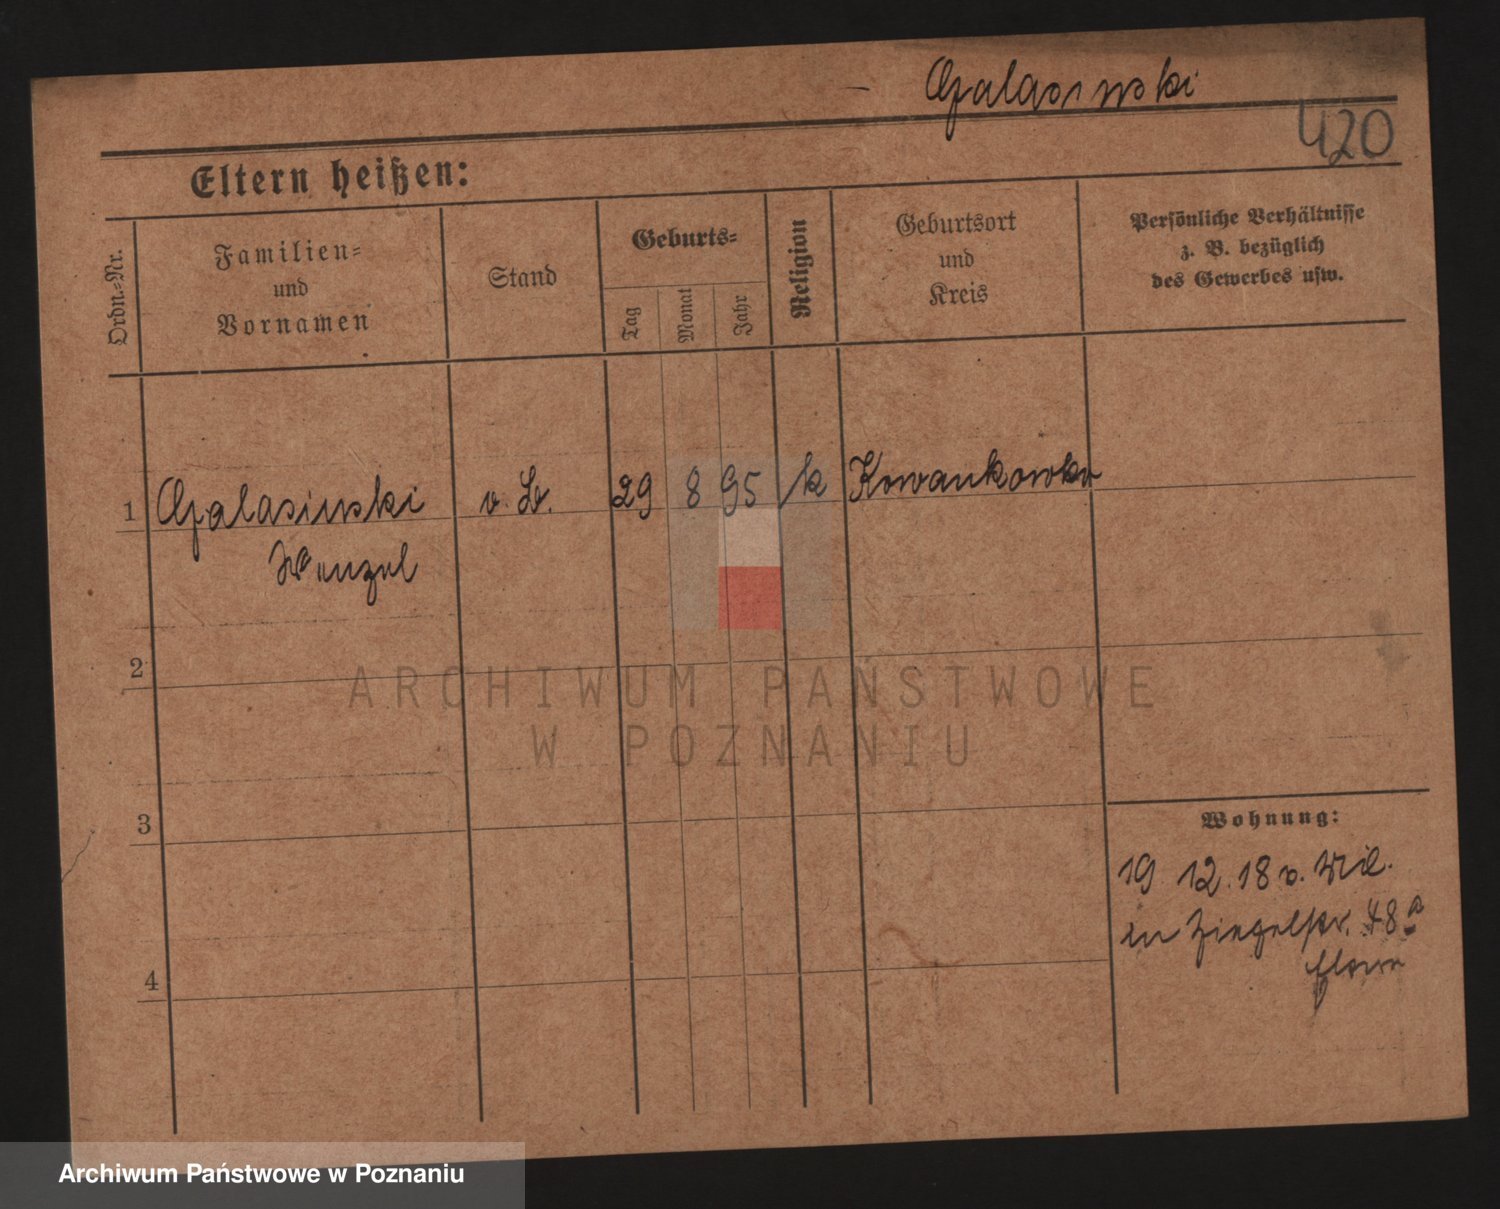 Galasinski
420
Eltern heißen:
Ordn.-Nr.
Familien-
und
Vornamen
Stand
Geburts-
Tag
Monat
Jahr
Religion
Geburtsort
und
Kreis
Persönliche Verhältnisse
z. B. bezüglich
des Gewerbes usw.
1 Galasinski v. B. 29 8 95 k Kowankowko
Wenzel
2
3
4
Wohnung:
19 12. 18 v. Mil.
in Ziegelstr. 48a
ARCHIWUM PAŃSTWOWE
W POZNANIU
Archiwum Państwowe w Poznaniu